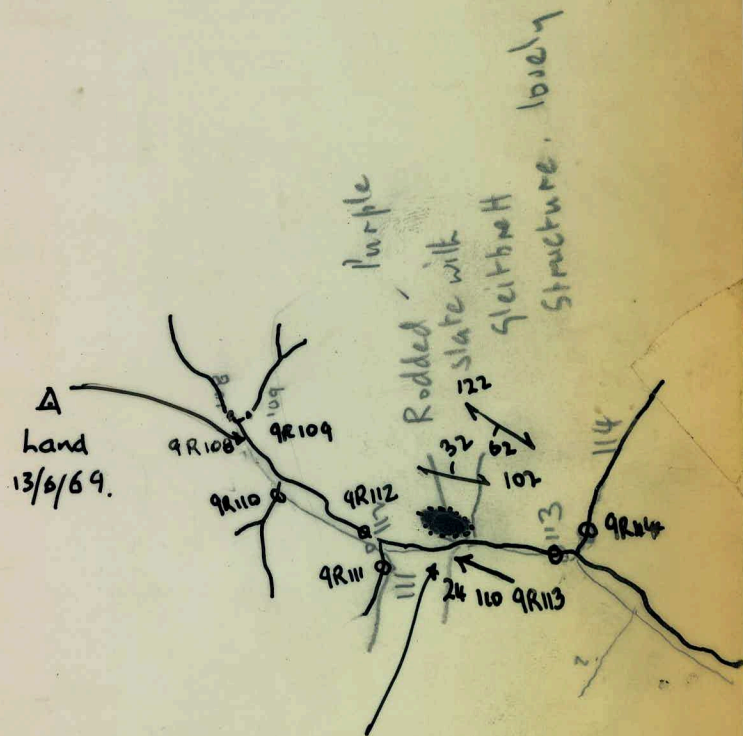 Purple
Rodded
Slate with
Gleitbrett
Structure. lovely
Δ
Land
13/6/69.
9R108
9R109
109
9R110
9R112
112
9R111
111
122
62
32
102
24
110
9R113
113
9R114
114
?